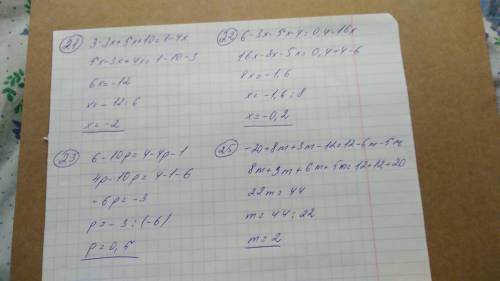 21) 3-3x+5x+10=1-4x
5x-3x+4x=1-10-3
6x=-12
x=-12:6
x=-2
22) 6-3x-5x-4=0,4-16x
16x-3x-5x=0,4+4-6
8x=-1,6
x=-1,6:8
x=-0,2
23) 6-10p=4-4p-1
4p-10p=4-1-6
-6p=-3
p=-3:(-6)
p=0,5
25) -20+8m+3m-12=12-6m-5m
8m+3m+6m+5m=12+12+20
22m=44
m=44:22
m=2